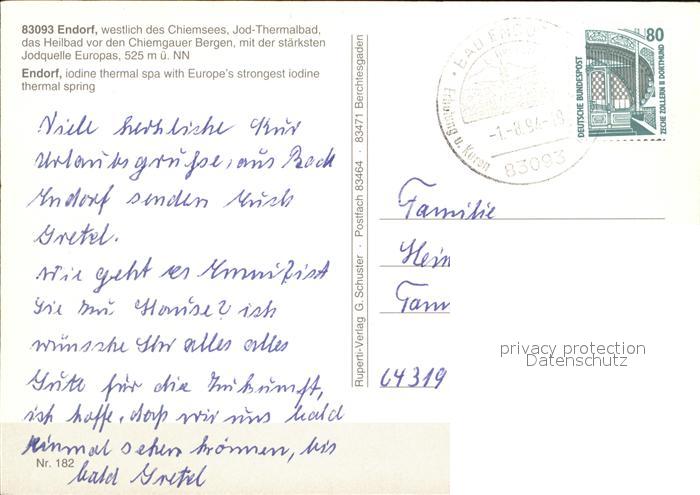 83093 Endorf, westlich des Chiemsees, Jod-Thermalbad,
das Heilbad vor den Chiemgauer Bergen, mit der stärksten
Jodquelle Europas, 525 m ü. NN
Endorf, iodine thermal spa with Europe's strongest iodine
thermal spring
Viele herhliche Kur
Urlaubsgrüße, aus Bad
Endorf senden Euch
Gretel.
Wie geht es
Sie zu Hause? ich
wünsche Ihr alles alles
Gute für die Zukunft,
ich hoffe, daß wir uns bald
einmal sehen können, bis
bald Gretel
Nr. 182
Ruperti-Verlag G. Schuster · Postfach 83464 · 83471 Berchtesgaden
BAD ENDO
-1.-8.94-18
Erholung u. Kuren
83093
80
DEUTSCHE BUNDESPOST
ZECHE ZOLLERN II DORTMUND
Familie
Hein
Tam
64319
privacy protection
Datenschutz